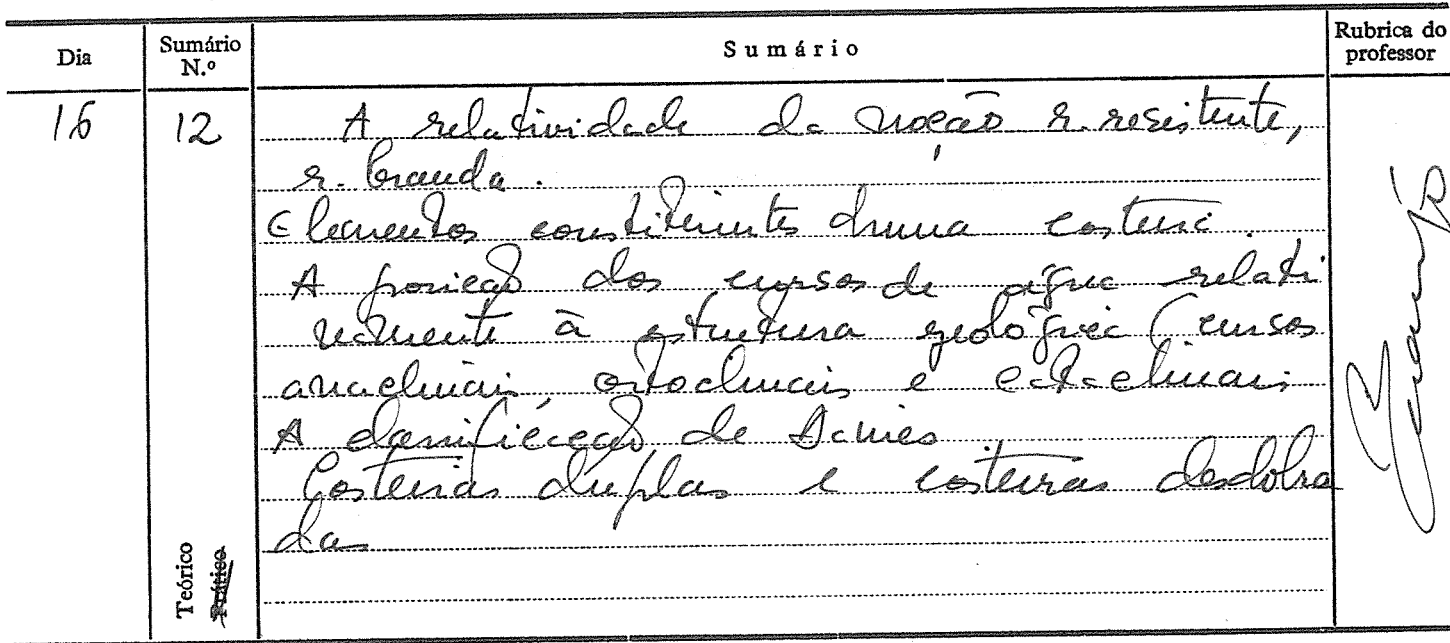 Dia
Sumário N.º
Sumário
Rubrica do professor
16
12
A relatividade da noção r. resistente,
r. branda.
Elementos constituintes duma costeira.
A posição dos cursos de água relati
vamente à estrutura geológica (cursos
anaclinais, ortoclinais e cataclinais
A classificação de Davies
Costeiras duplas e costeiras desdobra
das
Teórico
Prático